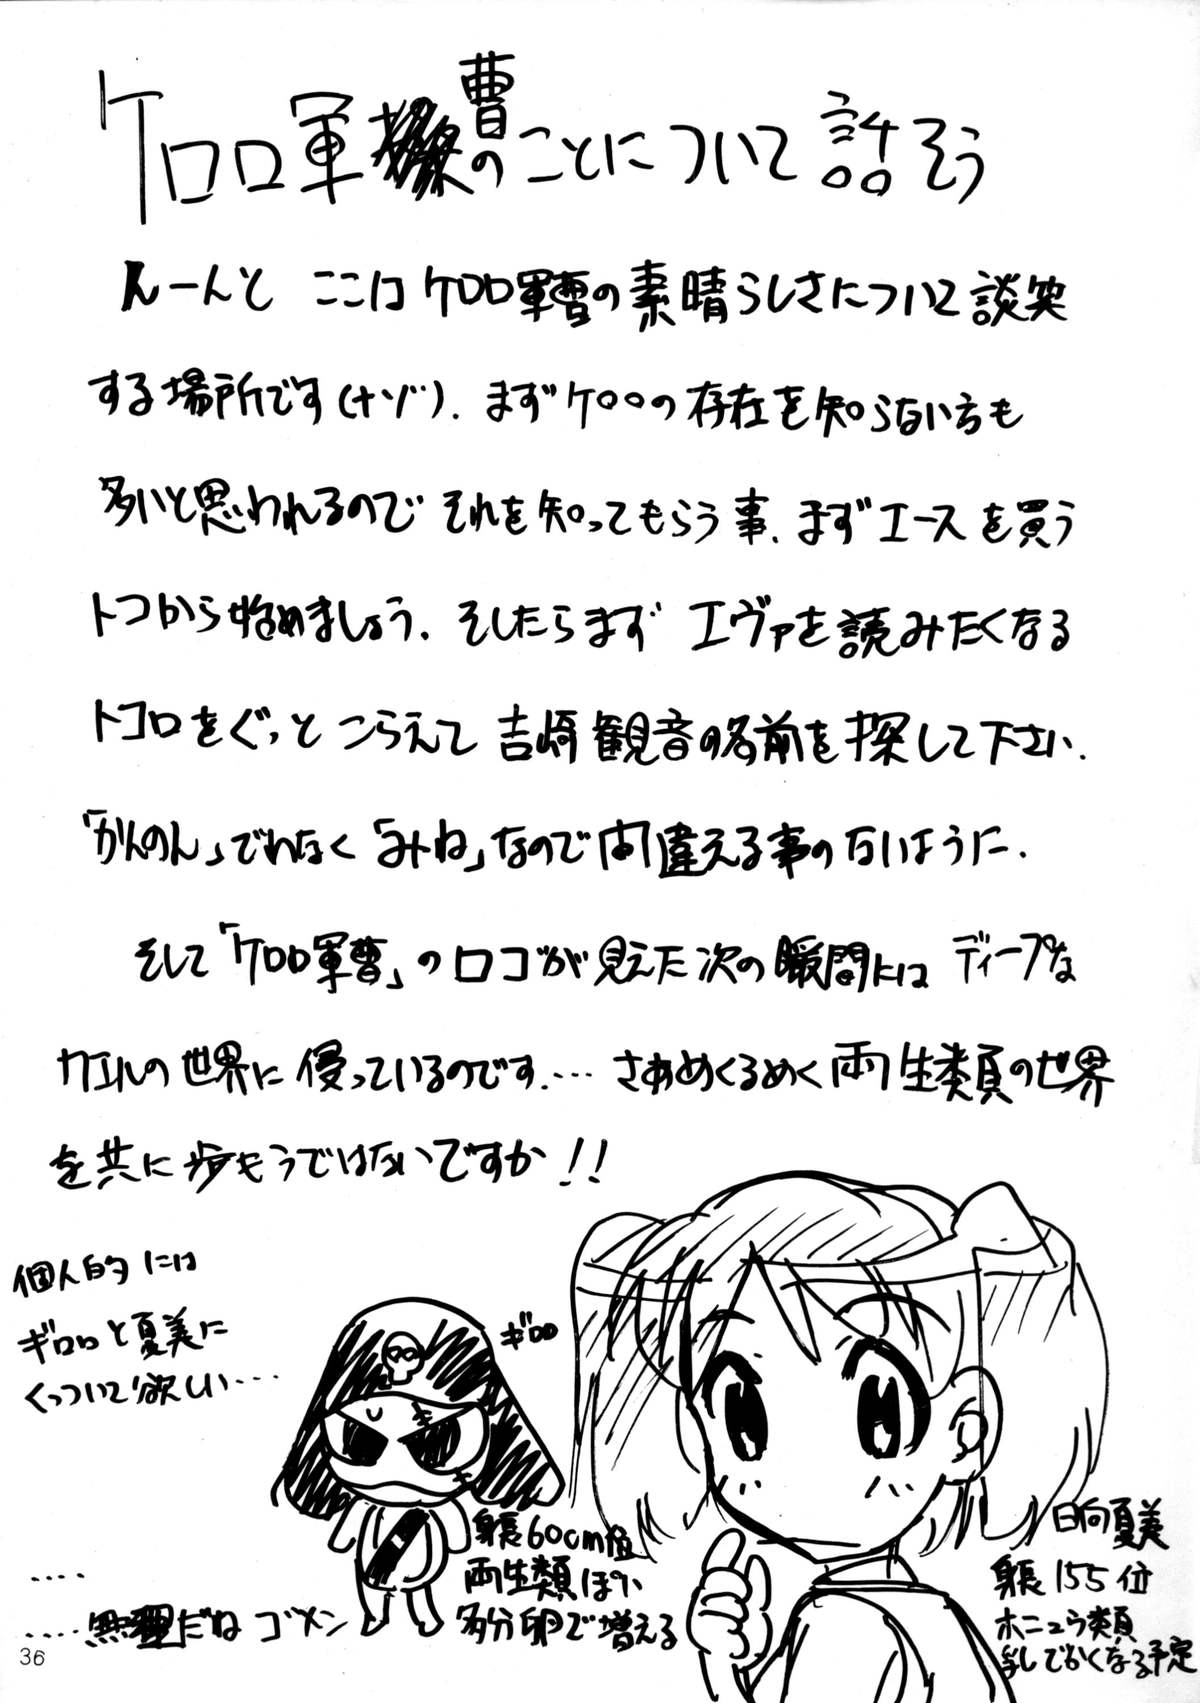 ケロロ軍曹のことについて話そう
んーんと ここはケロロ軍曹の素晴らしさについて談笑
する場所です(ナゾ). まずケロロの存在を知らない方も
多いと思われるのでそれを知ってもらう事. まずエースを買う
トコから始めましょう. そしたらまず エヴァを読みたくなる
トコロをぐっと こらえて 吉崎観音の名前を探して下さい.
「かんのん」でわなく「みね」なので間違える事のないように.
そして「ケロロ軍曹」のロゴが見えた次の瞬間には ディープな
カエルの世界に侵っているのです.… さあめくるめく両生類の世界
を共に歩もうではないですか!!
個人的には
ギロロと夏美に
くっついて欲しい…
ギロロ
身長60cm位
両生類ぽい
多分卵で増える
日向夏美
身長155位
ホニュウ類
乳しでかくなる予定
‥‥
‥‥無理だね ゴメン
36